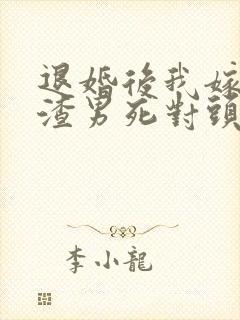 退婚後我嫁
渣男死對頭
李小龍